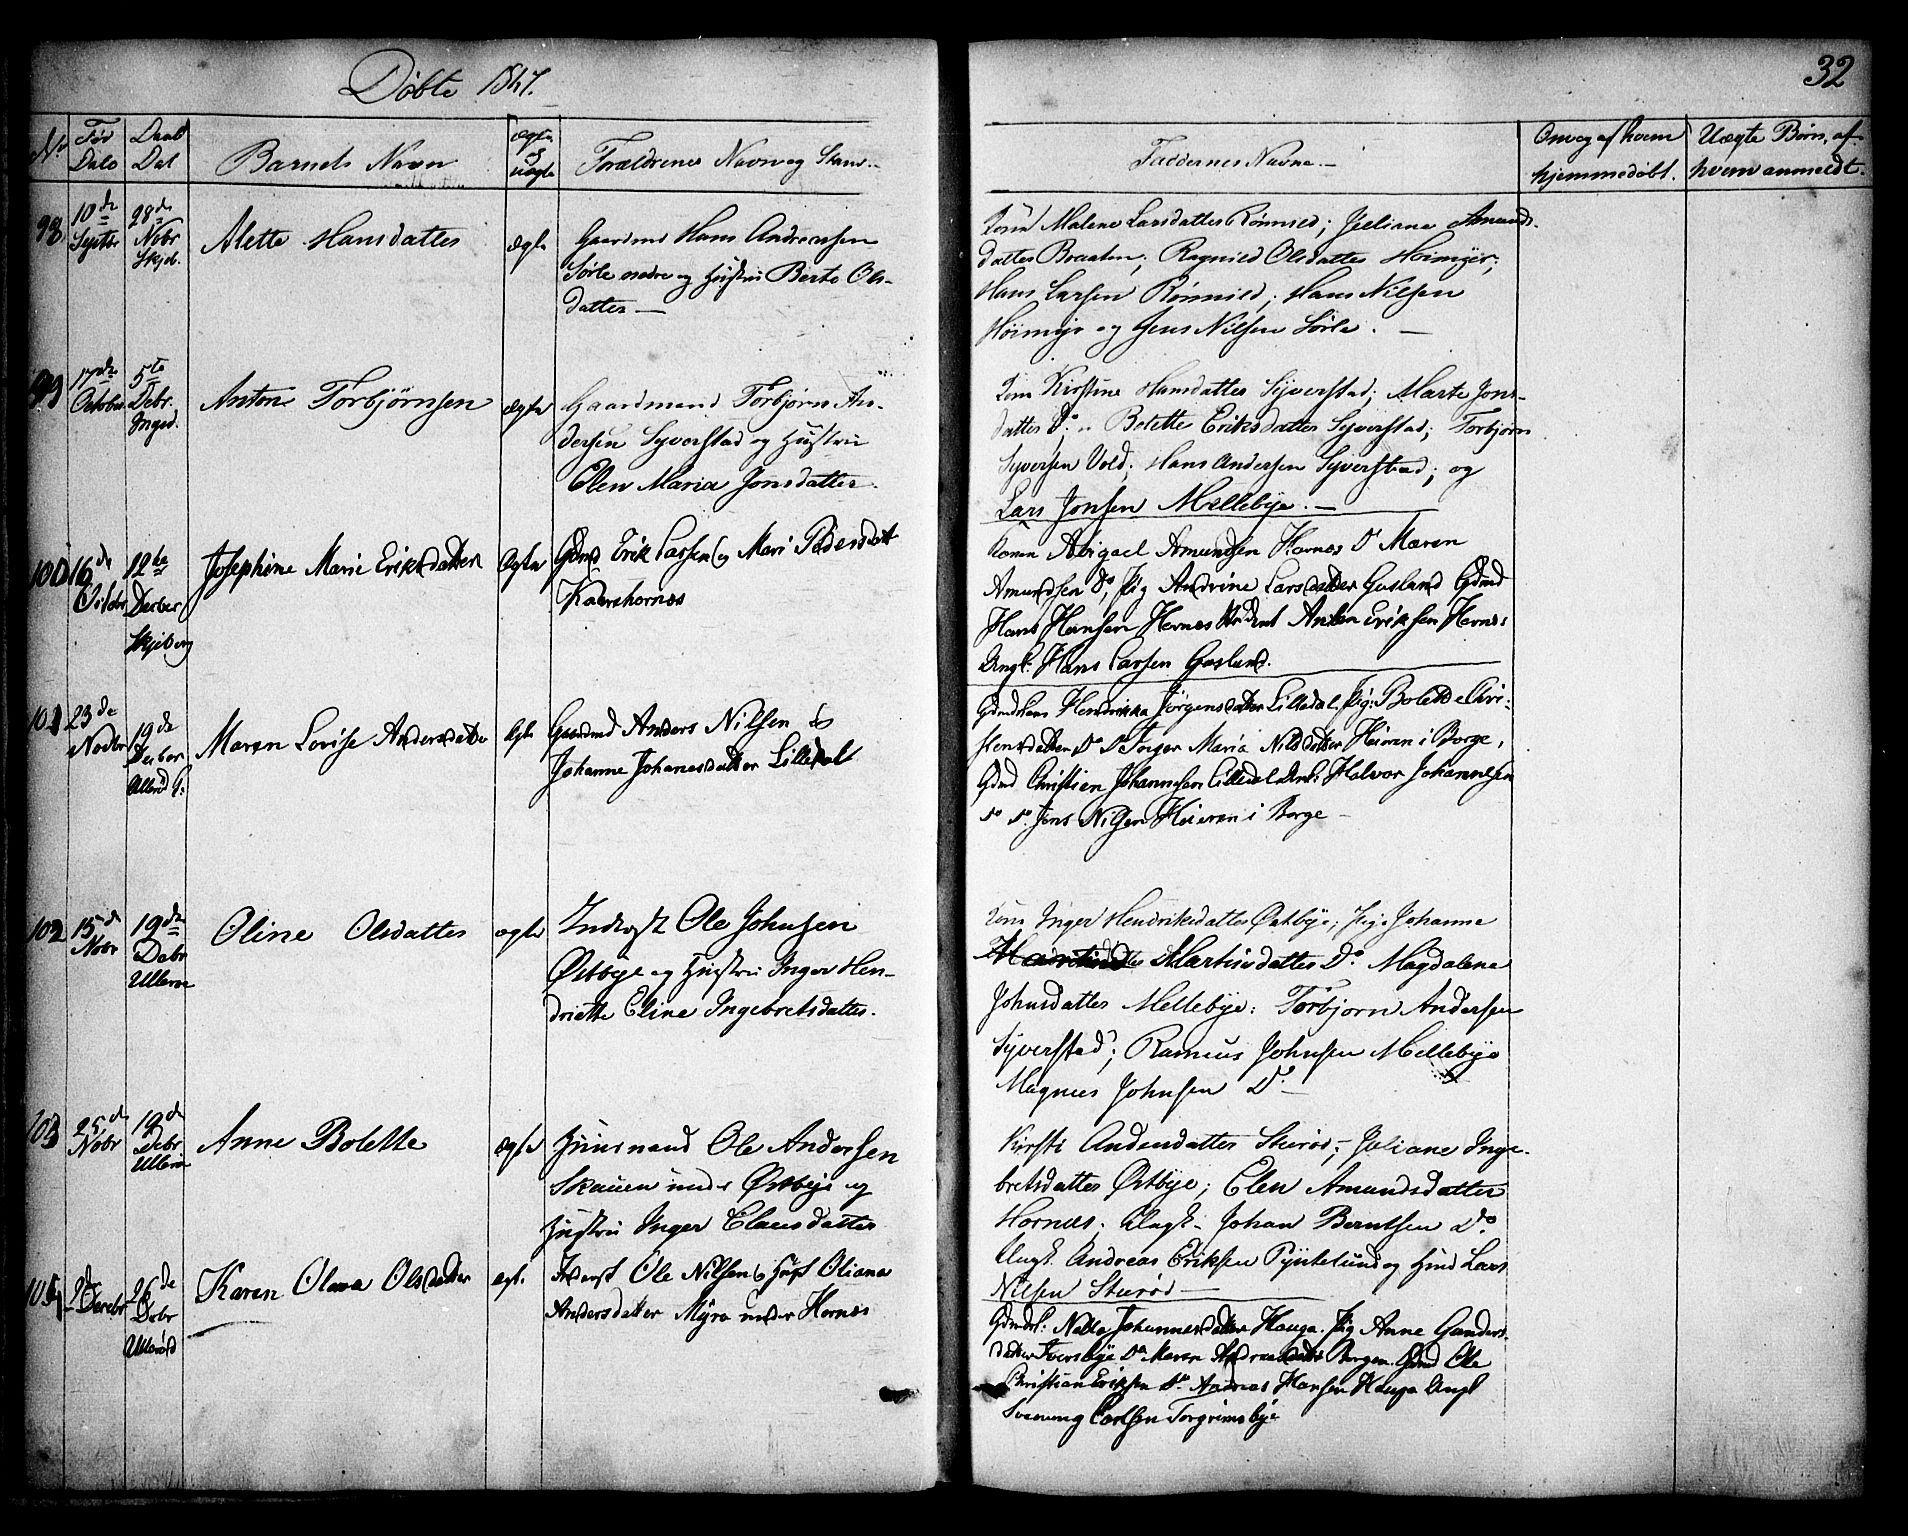 Døbte 1847.
32
No
Fød
Dato
Daab
Dat
Barnets Navn
ægte
og
uægte
Forældrenes Navn og Stand.
Faddernes Navne.
Om og af hvem
hjemmedøbt.
Uægte Børn, af
hvem anmeldt.
98
10de
Septbr
28de
Nobr
Skjeb.
Alette Hansdatter
ægte
Gaardmd Hans Andreasen
Sørle nedre og Hustru Berte Ols-
datter
Kone Malene Larsdatter Rønnild; Juliane Amunds-
datter Braaten; Ragnild Olsdatter Høimyr;
Hans Larsen Rønnild; Hans Nilsen
Høimyr og Jens Nilsen Sørle.
99
17de
October
5te
Debr.
Inged.
Anton Torbjørnsen
ægte
Gaardmand Torbjørn An-
dersen Syverstad og Hustru
Elen Maria Jonsdatter.
Kone Kirstine Hansdatter Syverstad; Marte Jons-
datter Do Bolette Eriksdatter Syverstad; Torbjørn
Syversen Vold; Hans Andersen Syverstad; og
Lars Jonsen Mellebye.
100
16de
Octobr
12te
Decber
Skjeberg
Josephine Marie Eriksdatter
Ægte
Gdmd Erik Larsen og Mari Pedersdatt
Kaareshornæs
Konen Abigael Amundsen Hornes Do Maren
Amundsen Do, Pig Andrine Larsdatter Gasland Gdmd
Hans Hansen Hornes Anton Eriksen Hornes
Ungk: Hans Larsen Gasland.
101
23de
Nodbr
19de
Decber
Ullerød K.
Maren Lovise Andersdatter
Ægte
Gaardmd Anders Nilsen &
Johanne Johanesdatter Lilledal
Gdmdskns Hendrikka Jørgensdatter Lilledal, Pig: Bolette Chri-
stensdatter Do Do Inger Maria Nilsdatter Heieren i Borge,
Gdmd Christien Johannesen Lilledal Halvor Johannesen
Do Do. Jens Nilsen Heieren i Borge
102
15de
Nobr
19de
Debr
Ullerø
Oline Olsdatter
ægte
Inderst Ole Johnsen
Østbye og Hustru Inger Hen-
driette Eline Ingebretsdatter.
Kone Inger Hendriksdatter Østbye; Pige Johanne
Martinsdatter Do Magdalene
Johnsdatter Mellebye; Torbjorn Andersen
Syverstad; Ramus Johnsen Mellebye
Magnus Johnsen Do
103
25de
Nobr
19de
Debr
Ullerø
Anne Bolette
ægte
Huusmand Ole Andersen
Skauen under Østbye og
Hustru Inger Clausdatter
Kirsti Andersdatter Sturød; Juliane Inge-
bretsdatter Østbye; Elen Amundsdatter
Hornæs. Ungk. Johan Berntsen Do
Ungk. Andreas Eriksen Pyntelund og Hmd Lars
Nilsen Sturød
104
2de
Decebr
26de
Debr
Ullerød
Karen Olava Olsdatter
ægt.
Inderst Ole Nilsen & Hust Oliana
Andersdatter Myra under Hornæs
Gdmdsk. Johannesdatter Hauga. Pig Anne Gunders-
datter Iversbye Do Maren Andreasdatt Borgen. Gdmd Ole
Christian Eriksen Do Andreas Hansen Hauga Ungk
Svenung Carlsen Torgrimsbye